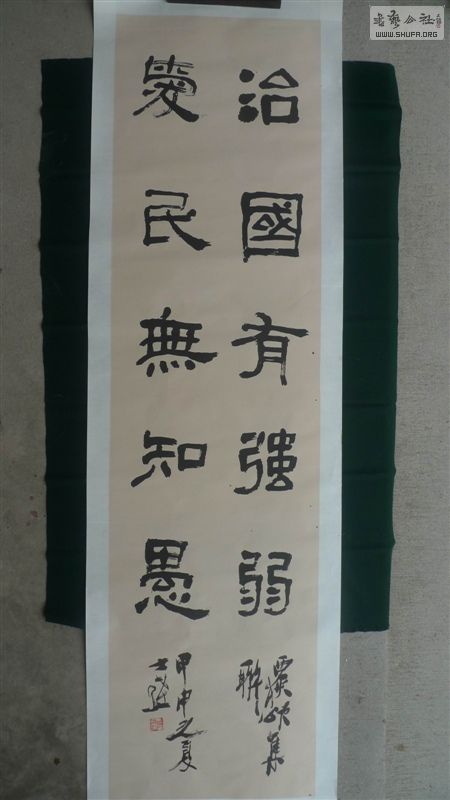 治國有強弱
愛民無知愚
西狹頌集
聯
甲申之夏
書藝公社
WWW.SHUFA.ORG